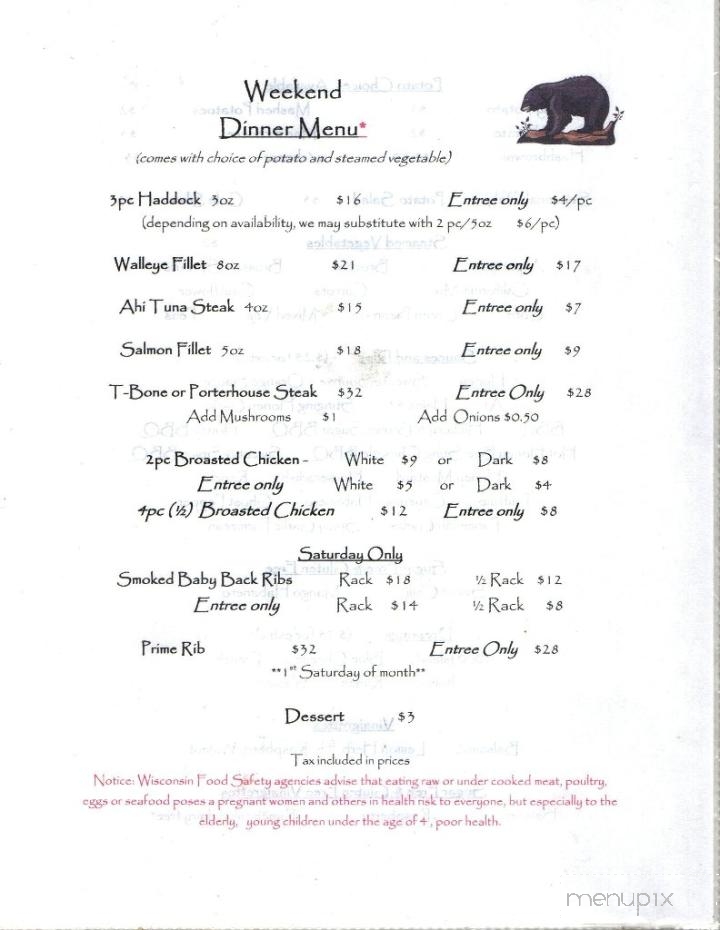 Weekend
Dinner Menu*
(comes with choice of potato and steamed vegetable)
3pc Haddock 3oz $16 Entree only $4/pc
(depending on availability, we may substitute with 2 pc/5oz $6/pc)
Walleye Fillet 8oz $21 Entree only $17
Ahi Tuna Steak 4oz $15 Entree only $7
Salmon Fillet 5oz $18 Entree only $9
T-Bone or Porterhouse Steak $32 Entree Only $28
Add Mushrooms $1 Add Onions $0.50
2pc Broasted Chicken - White $9 or Dark $8
Entree only White $5 or Dark $4
4pc (½) Broasted Chicken $12 Entree only $8
Saturday Only
Smoked Baby Back Ribs Rack $18 ½ Rack $12
Entree only Rack $14 ½ Rack $8
Prime Rib $32 Entree Only $28
**1st Saturday of month**
Dessert $3
Tax included in prices
Notice: Wisconsin Food Safety agencies advise that eating raw or under cooked meat, poultry,
eggs or seafood poses a pregnant women and others in health risk to everyone, but especially to the
elderly, young children under the age of 4, poor health.
menupix